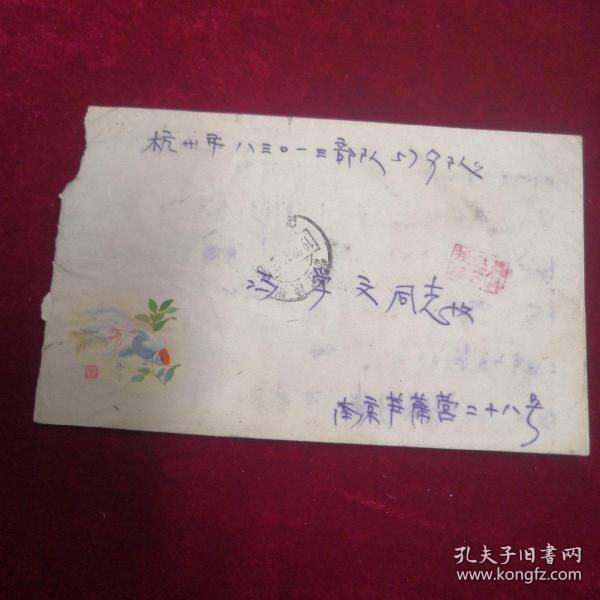 杭州市八三〇一三部队57分队
同志收
南京芦蓆营二十八号
孔夫子旧书网
www.kongfz.com